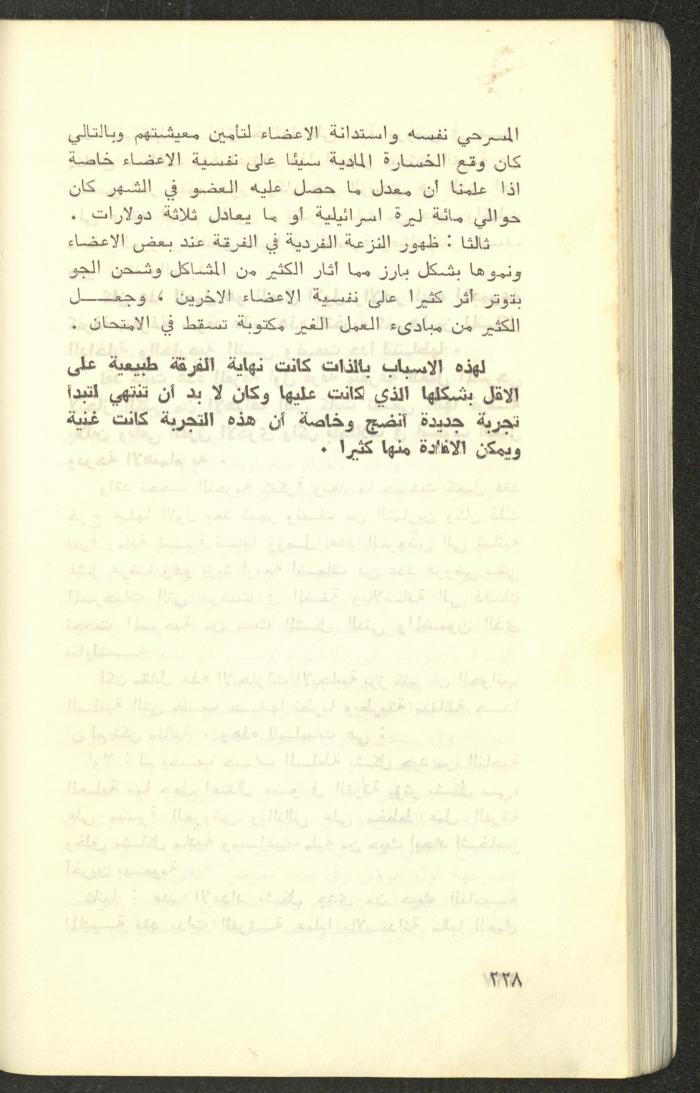 المسرحي نفسه واستدانة الاعضاء لتأمين معيشتهم وبالتالي
كان وقع الخسارة المادية سيئا على نفسية الاعضاء خاصة
اذا علمنا أن معدل ما حصل عليه العضو في الشهر كان
حوالي مائة ليرة اسرائيلية أو ما يعادل ثلاثة دولارات .
ثالثا : ظهور النزعة الفردية في الفرقة عند بعض الاعضاء
ونموها بشكل بارز مما أثار الكثير من المشاكل وشحن الجو
بتوتر أثر كثيرا على نفسية الاعضاء الاخرين ، وجعـــل
الكثير من مبادىء العمل الغير مكتوبة تسقط في الامتحان .
لهذه الاسباب بالذات كانت نهاية الفرقة طبيعية على
الاقل بشكلها الذي كانت عليها وكان لا بد أن تنتهي لتبدأ
تجربة جديدة أنضج وخاصة أن هذه التجربة كانت غنية
ويمكن الافادة منها كثيرا .
٢٢٨